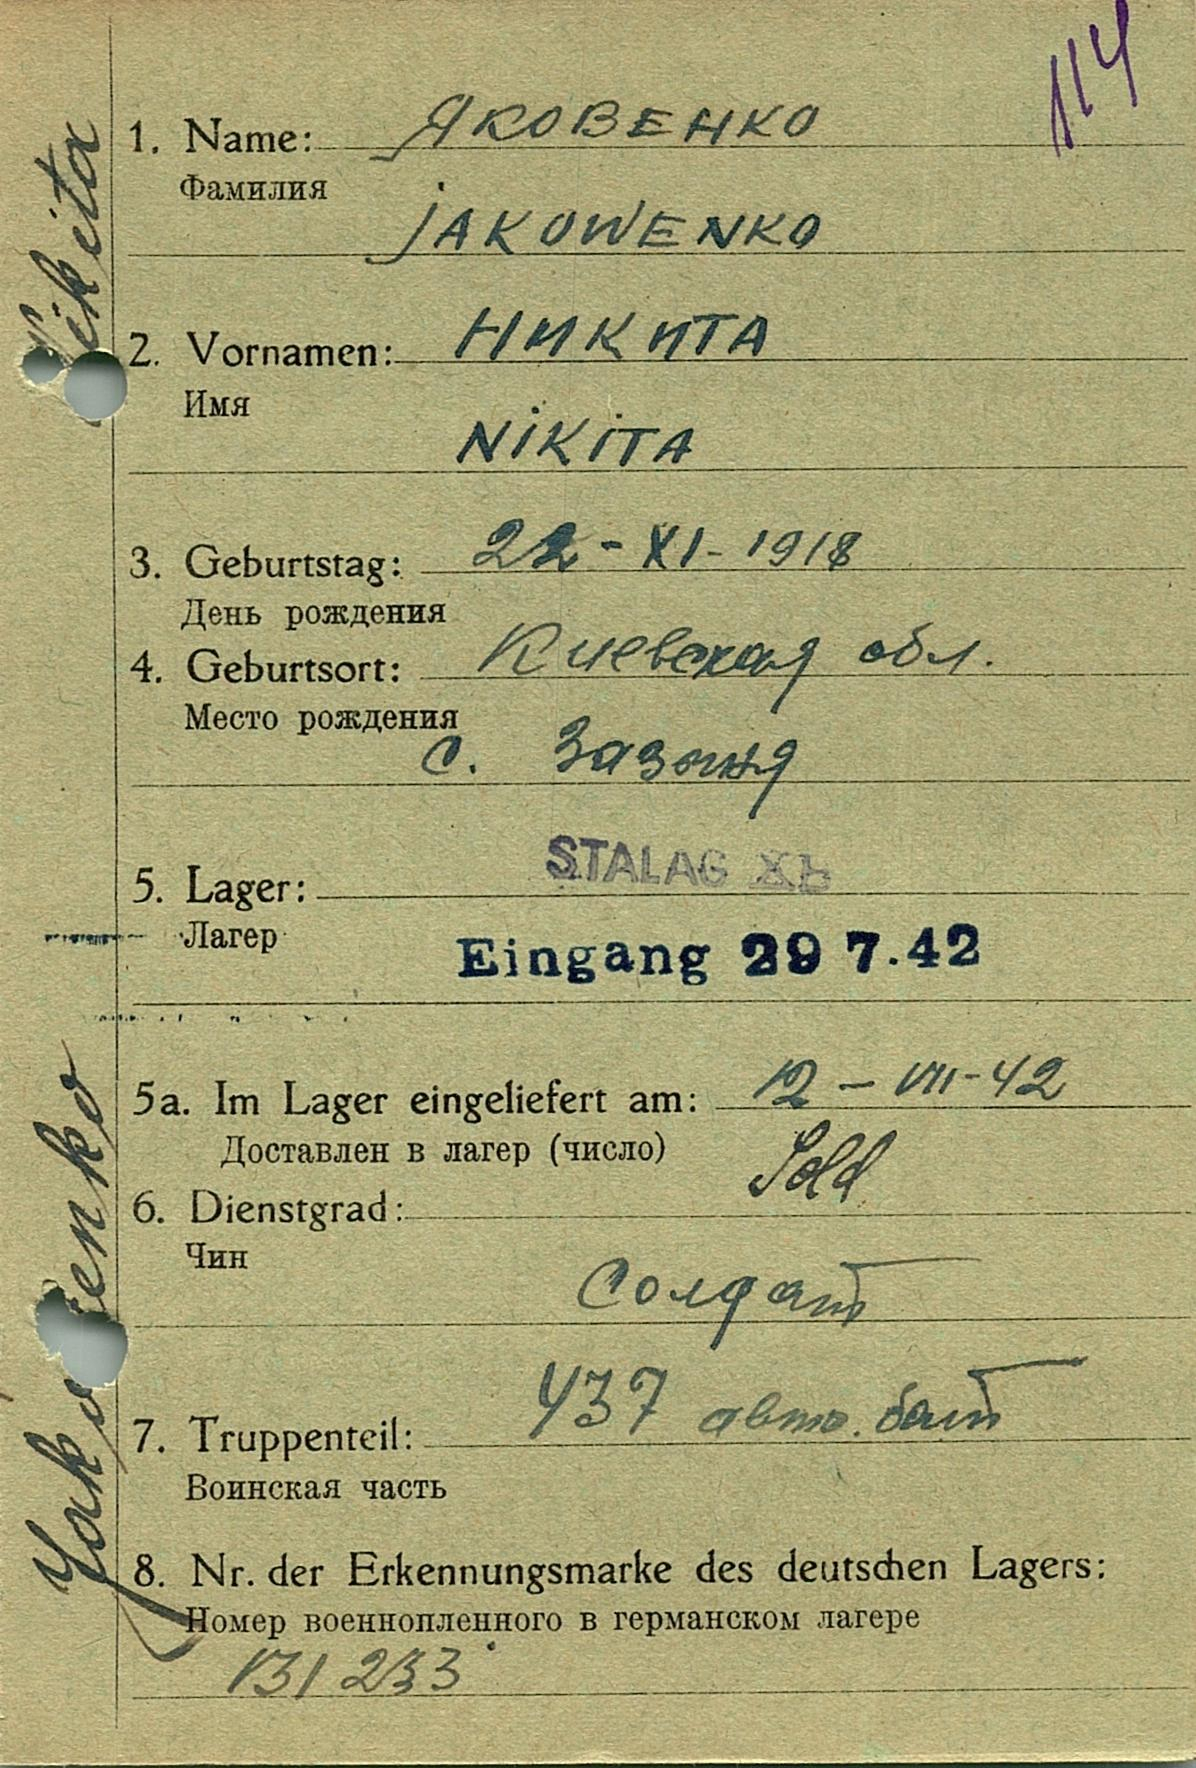 114
1. Name: ЯКОВЕНКО
Фамилия
jAKOWENKO
2. Vornamen: НИКИТА
Имя
NiKiTA
3. Geburtstag: 22 - XI - 1918
День рождения
4. Geburtsort: Киевская обл.
Место рождения
с.
5. Lager: STALAG
Лагер
Eingang 29 7.42
5a. Im Lager eingeliefert am: 12 - VII - 42
Доставлен в лагер (число)
Sold
6. Dienstgrad:
Чин
Солдат
7. Truppenteil: 437 авто. бат
Воинская часть
8. Nr. der Erkennungsmarke des deutschen Lagers:
Номер военнопленного в германском лагере
131233
Yakovenko Nikita